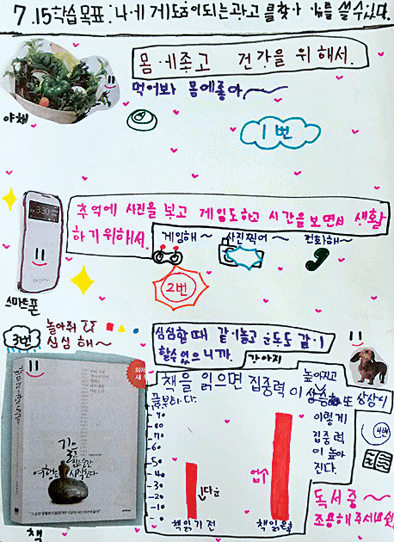 7.15학습목표:나에게도움이되는광고를찾아 쓸수있다.
몸에좋고 건강을 위해서.
먹어봐 몸에좋아~
야채
1번
추억에 사진을 보고 게임도하고 시간을 보면서 생활
하기위해서.
게임해~ 사진찍어~ 전화해~
2번
스마트폰
3번
놀아줘
심심해~
심심할때 같이놀고 운동도 같이
할수있으니까.
강아지
책을 읽으면 집중력이
높아지고
상상력도
이렇게
집중력
이 높아
진다.
4번
책읽기전
책읽은후
독서중~
조용해주세요
길을 잃은 순간
여행은 시작된다
책